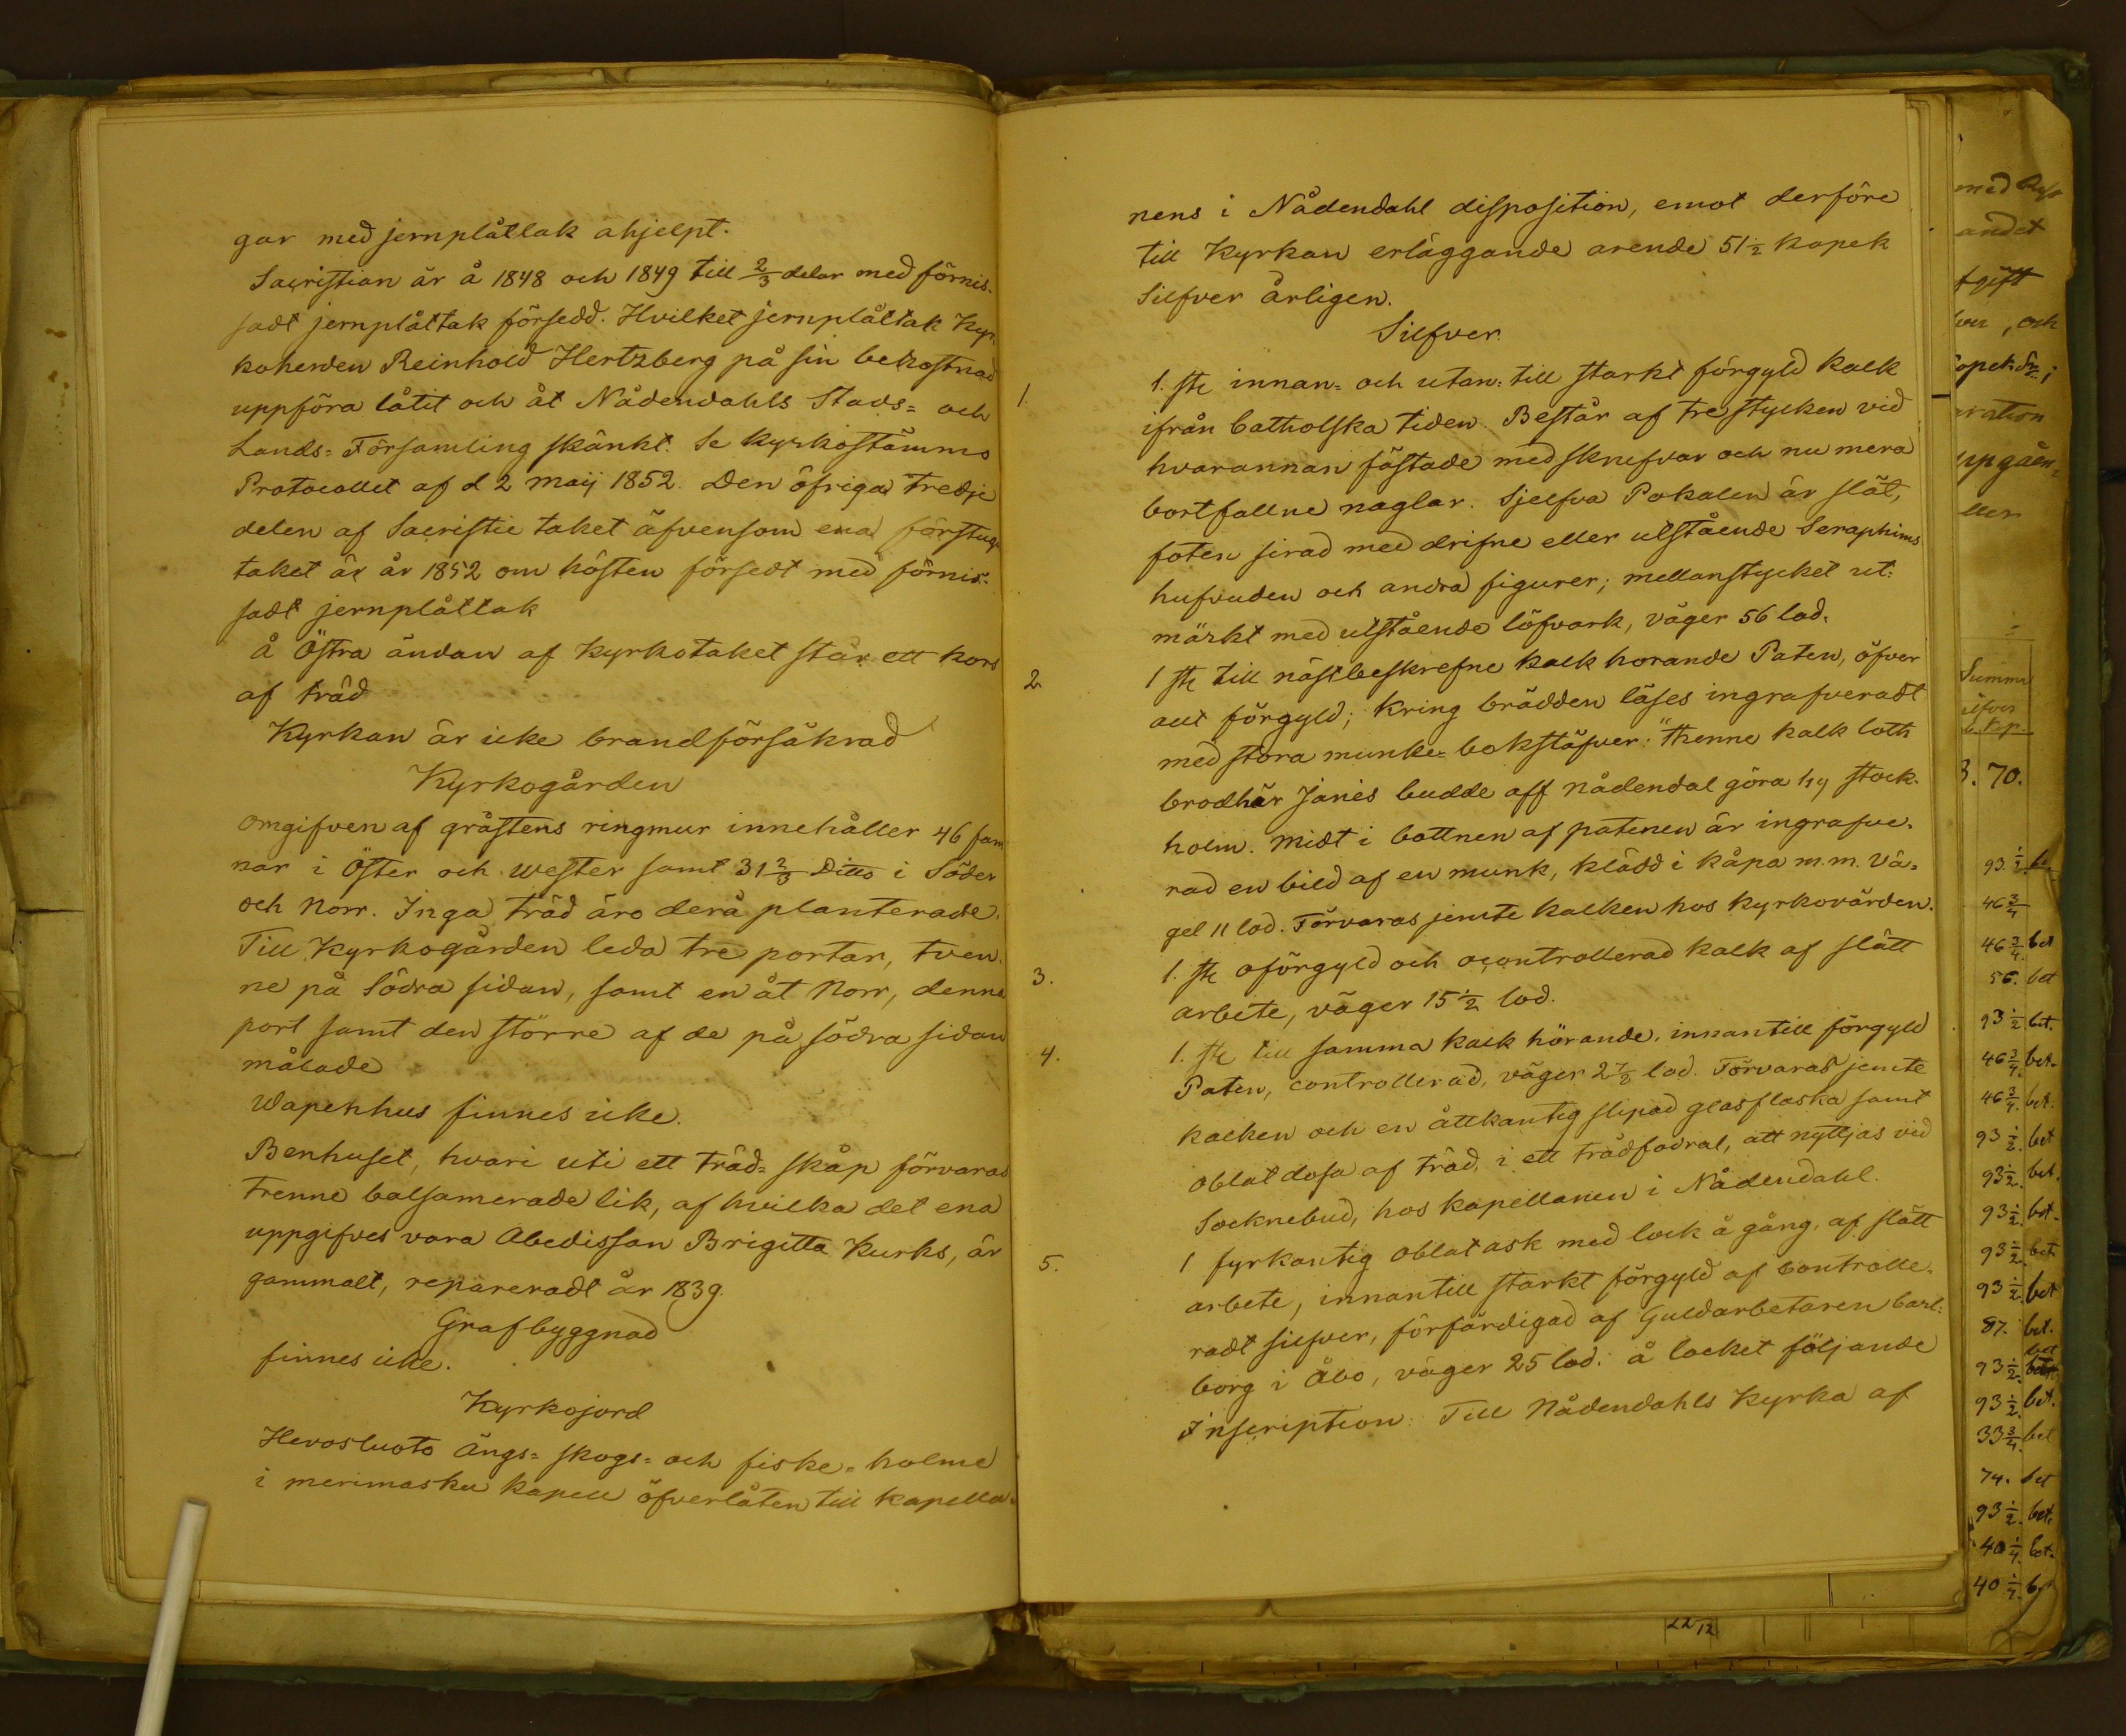 gar med jernplåttak ahjelpt.
Sacristian är å 1848 och 1849 till 2/3 delar med förnis-
sadt jernplåttak försedd. Hvilket jernplåttak Kyr-
koherden Reinhold Hertzberg på sin bekostnad
uppföra låtit och åt Nådendahls Stads= och
Lands= Församling skänkt. Se Kyrkostämmo
Protocollet af d 2 Maij 1852. Den öfriga tredje
delen af Sacristie taket äfvensom ena förstugu
taket är år 1852 om hösten försedt med förnis-
sadt jernplåttak
å Östra ändan af Kyrkotaket står ett kors
af träd
Kyrkan är icke brandförsäkrad
Kyrkogården
omgifven af gråstens ringmur innehåller 46 fam
nar i Öster och Wester samt 31 2/3 Ditto i Söder
och Norr. Inga träd äro derå planterade.
Till Kyrkogården leda tre portar, tven-
ne på Södra sidan, samt en åt Norr, denna
port samt den större af de på södra sidan
målade
Wapenhus finnes icke.
Benhuset, hvari uti ett träd= skåp förvaras
trenne balsamerade lik, af hvilka det ena
uppgifves vara Abedissan Brigitta Kurks, är
gammalt, repareradt år 1839.
Grafbyggnad
finnes icke.
Kyrkojord
Hevosluoto Ängs= skogs= och fiske= holme
i Merimasku Kapell öfverlåten till Kapella-
nens i Nådendahl disposition, emot derföre
till Kyrkan erläggande arende 51 1/2 kopek
Silfver årligen.
Silfver.
1. 1. st innan= och utan= till starkt förgyld kalk
ifrån Catholska tiden. Består af tre stycken vid
hvarannan fästade med skrufvar och nu mera
bortfallne naglar. Sjelfva Pokalen är slät,
foten sirad med drifne eller utstående Seraphims
hufvuden och andra figurer; mellanstycket ut-
märkt med utstående löfvark, väger 56 lod.
2 1 st till näst beskrefne kalk horande Paten, öfver
allt förgyld; kring brädden läses ingrafveradt
med stora munke= bokstäfver: "Thenne kalk loth
brodhär Jønis budde aff nådendal göra hy stock-
holm. Midt i bottnen af patenen är ingrafve-
rad en bild af en munk, klädd i kåpa m.m. Vä-
gel 11 lod. Förvaras jemte kalken hos Kyrkovärden.
3. 1. st oförgyld och ocontrollerad kalk af slätt
arbete, väger 15 1/2 lod.
4. 1. st till samma kalk hörande, innantill förgyld
Paten, controllerad, väger 2 7/8 lod. Förvaras jemte
kalken och en åttkantig slipad glasflaska samt
oblat dosa af träd, i ett trädfodral, att nyttjas vid
Socknebud, hos kapellanen i Nådendahl.
5. 1 fyrkantig oblat ask med lock å gång, af slätt
arbete, innantill starkt förgyld af controlle-
radt silfver, förfärdigad af Guldarbetaren Carl-
borg i Åbo, väger 25 lod. å locket följande
Inscription: Till Nådendahls Kyrka af
med
andet
och
Summa
Kop.
3. 70.
93 1/2
46 3/4
46 3/4. bet
56. bet
93 1/2 bet.
46 3/4. bet.
46 3/4. bet.
93 1/2. bet
93 1/2. bet.
93 1/2. bet.
93 1/2. bet
93 1/2. bet
87. bet.
93 1/2. bet
93 1/2. bet.
33 3/4. bet
74. bet
93 1/2. bet.
40 1/4. bet.
40 1/4.